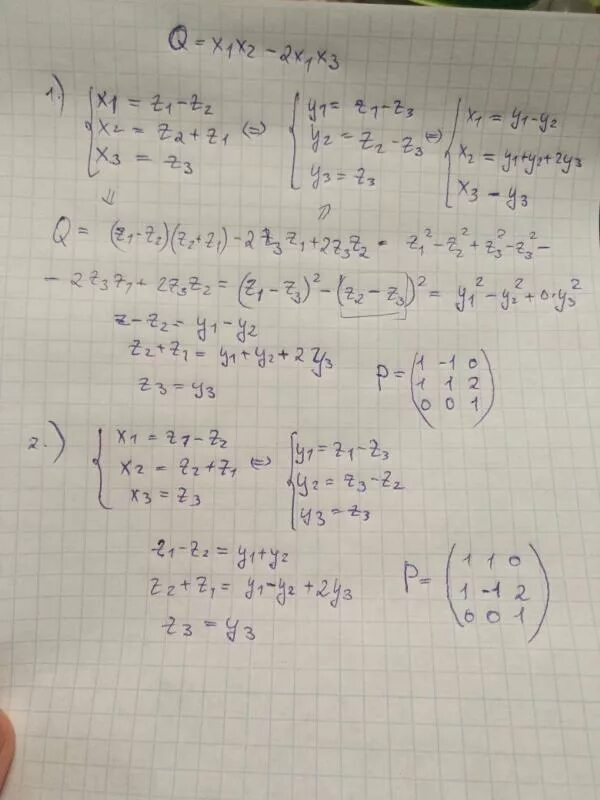 Q = x1x2 - 2x1x3
1.) { x1 = z1 - z2
x2 = z2 + z1
x3 = z3
⇔ { y1 = z1 - z3
y2 = z2 - z3
y3 = z3
⇔ { x1 = y1 - y2
x2 = y1 + y2 + 2y3
x3 - y3
⇓ ⇑
Q = (z1 - z2)(z2 + z1) - 2z3z1 + 2z3z2 = z1² - z2² + z3² - z3² -
- 2z3z1 + 2z3z2 = (z1 - z3)² - (z2 - z3)² = y1² - y2² + 0·y3²
z - z2 = y1 - y2
z2 + z1 = y1 + y2 + 2y3
z3 = y3
P = (1 -1 0
1 1 2
0 0 1)
2.) { x1 = z1 - z2
x2 = z2 + z1
x3 = z3
⇔ { y1 = z1 - z3
y2 = z3 - z2
y3 = z3
z1 - z2 = y1 + y2
z2 + z1 = y1 - y2 + 2y3
z3 = y3
P = (1 1 0
1 -1 2
0 0 1)